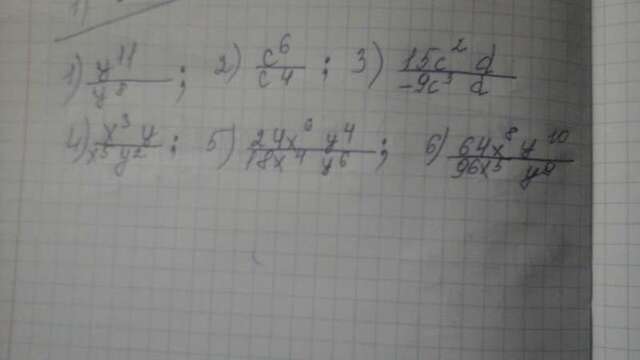 1) y^11/y^8 ; 2) c^6/c^4 ; 3) 15c^2 d/-9c^3 d
4) x^3 y/x^5 y^2 ; 5) 24x^6 y^4/18x^4 y^6 ; 6) 64x^8 y^10/96x^5 y^9